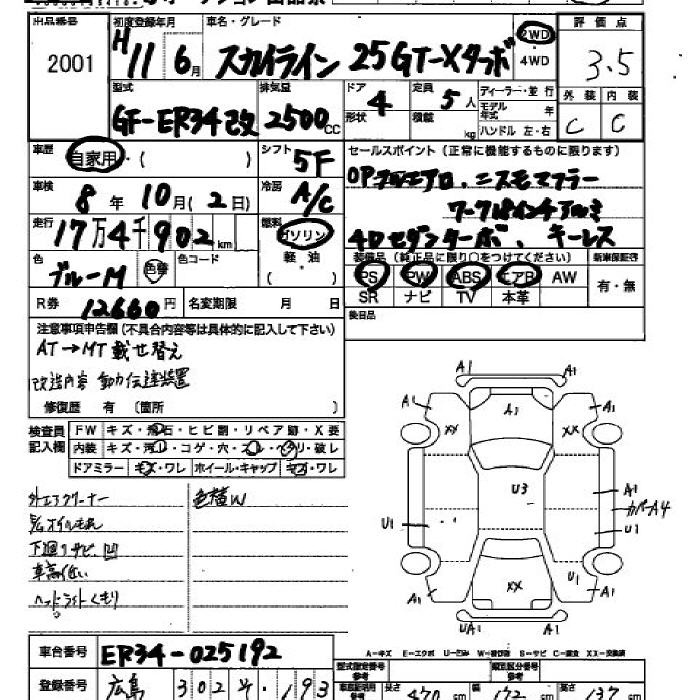 出品番号 初度登録年月 車名・グレード 評価点
2001 H11 6月 スカイライン 25GT-Xターボ 2WD 4WD 3.5
型式 排気量 ドア 定員 ディーラー・並行 外装 内装
GF-ER34改 2500cc 4 5人 モデル年式 年 C C
形状 積載 kg ハンドル 左・右
車歴 自家用・( ) シフト 5F セールスポイント(正常に機能するものに限ります)
車検 8年10月(2日) 冷房 A/C OPフロエアロ、ニスモマフラー
ワーク18インチアルミ
走行 17万4千902km 燃料 ガソリン 4Dセダンターボ、キーレス
色 ブルーM 色替 色コード 軽油 ( )
装備品(純正品に限り○をつけてください) 新車保証書
PS PW ABS エアB AW 有・無
SR ナビ TV 本革
R券 12660円 名変期限 月 日 後日品
注意事項申告欄(不具合内容等は具体的に記入して下さい)
AT→MT載せ替え
改造内容 動力伝達装置
修復歴 有 〔箇所 〕
検査員記入欄 FW キズ・飛石・ヒビ割・リペア跡・X要
内装 キズ・汚レ・コゲ・穴・スレ・ヘタリ・破レ
ドアミラー キズ・ワレ ホイール・キャップ キズ・ワレ
外エアクリーナー 色褪W
下廻りサビ 凹
車高低い
ヘッドライトくもり
A1
A1 A1 A1
XX XX
U3
A1
カバーA4
U1 U1
U1
XX
A1 A1
UA1 A1
A-キズ E-エクボ U-凹ミ W-補修跡 S-サビ C-腐食 XX-交換済
車台番号 ER34-025192
型式指定番号 参考 類別区分番号 参考
登録番号 広島 302 そ ・193
長さ 470cm 幅 172cm 高さ 137cm